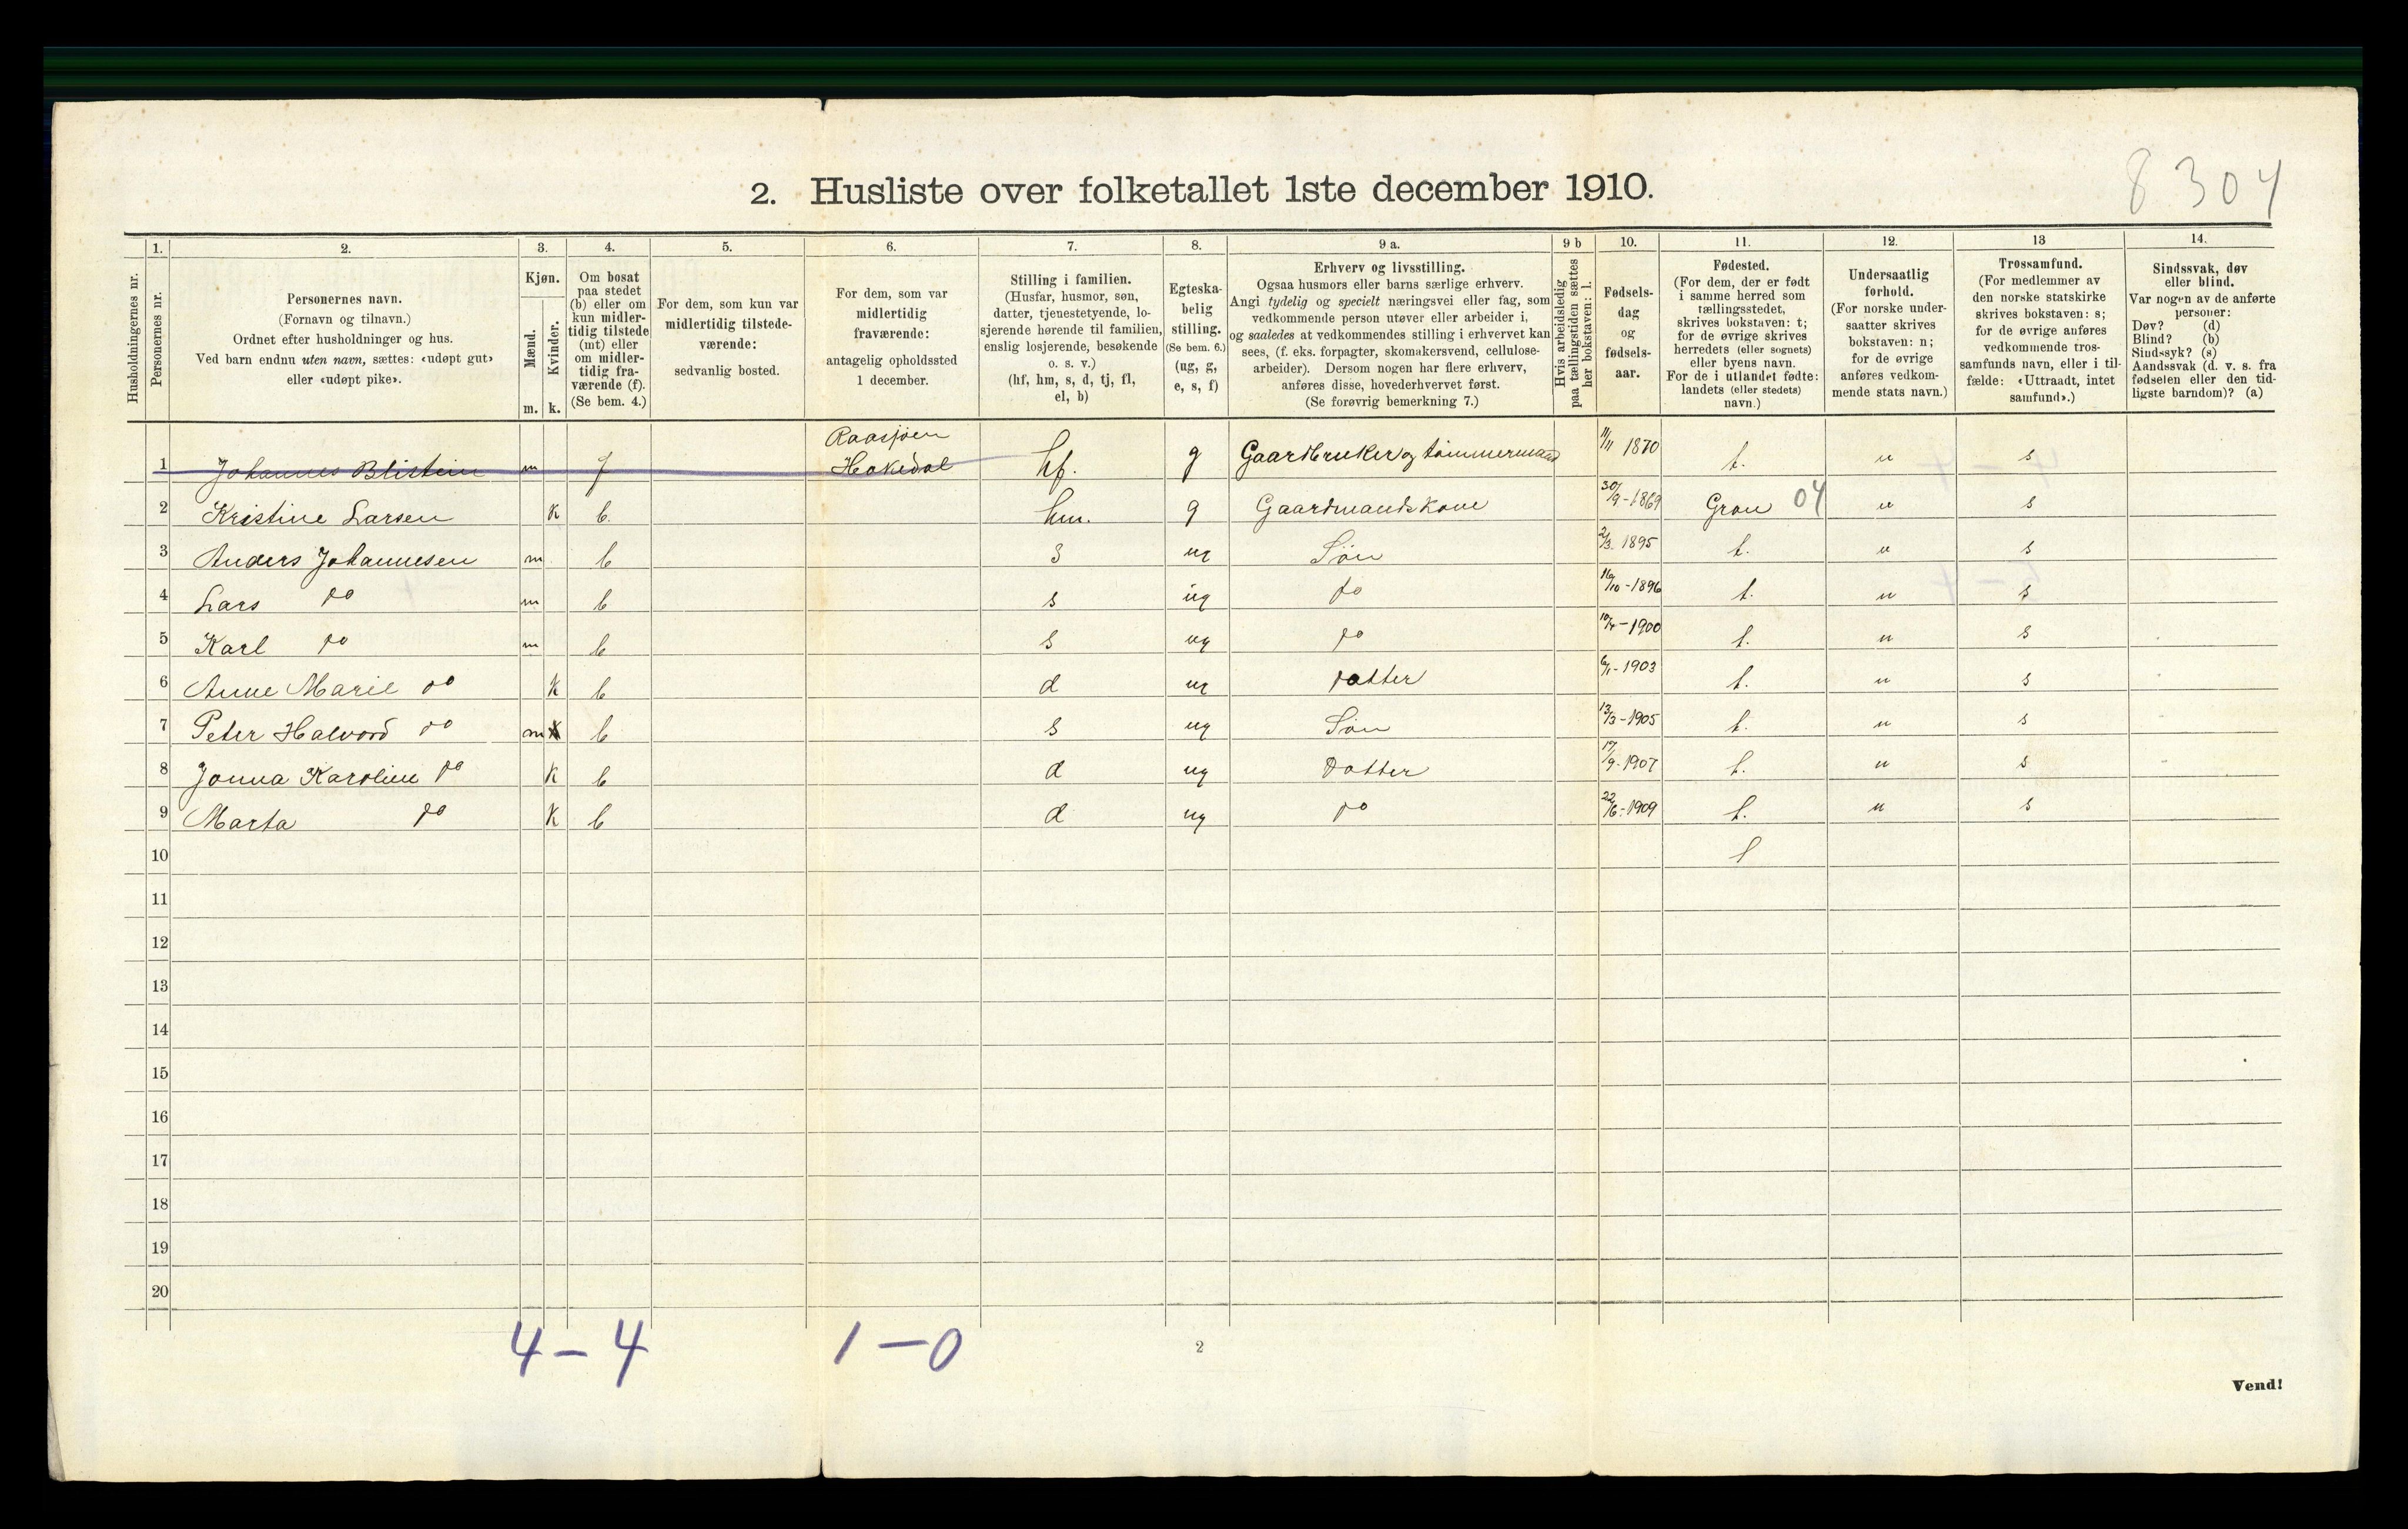 8304
2. Husliste over folketallet 1ste december 1910.
1. 2. 3. 4. 5. 6. 7. 8. 9 a. 9 b 10. 11. 12. 13 14.
Husholdningernes nr.
Personernes nr.
Personernes navn.
(Fornavn og tilnavn.)
Ordnet efter husholdninger og hus.
Ved barn endnu uten navn, sættes: «udøpt gut»
eller «udøpt pike».
Kjøn.
Mænd.
Kvinder.
m. k.
Om bosat
paa stedet
(b) eller om
kun midler-
tidig tilstede
(mt) eller
om midler-
tidig fra-
værende (f).
(Se bem. 4.)
For dem, som kun var
midlertidig tilstede-
værende:
sedvanlig bosted.
For dem, som var
midlertidig
fraværende:
antagelig opholdssted
1 december.
Stilling i familien.
(Husfar, husmor, søn,
datter, tjenestetyende, lo-
sjerende hørende til familien,
enslig losjerende, besøkende
o. s. v.)
(hf, hm, s, d, tj, fl,
el, b)
Egteska-
belig
stilling.
(Se bem. 6.)
(ug, g,
e, s, f)
Erhverv og livsstilling.
Ogsaa husmors eller barns særlige erhverv.
Angi tydelig og specielt næringsvei eller fag, som
vedkommende person utøver eller arbeider i,
og saaledes at vedkommendes stilling i erhvervet kan
sees, (f. eks. forpagter, skomakersvend, cellulose-
arbeider). Dersom nogen har flere erhverv,
anføres disse, hovederhvervet først.
(Se forøvrig bemerkning 7.)
Hvis arbeidsledig
paa tællingstiden sættes
her bokstaven: l.
Fødsels-
dag
og
fødsels-
aar.
Fødested.
(For dem, der er født
i samme herred som
tællingsstedet,
skrives bokstaven: t;
for de øvrige skrives
herredets (eller sognets)
eller byens navn.
For de i utlandet fødte:
landets (eller stedets)
navn.)
Undersaatlig
forhold.
(For norske under-
saatter skrives
bokstaven: n;
for de øvrige
anføres vedkom-
mende stats navn.)
Trossamfund.
(For medlemmer av
den norske statskirke
skrives bokstaven: s;
for de øvrige anføres
vedkommende tros-
samfunds navn, eller i til-
fælde: «Uttraadt, intet
samfund».)
Sindssvak, døv
eller blind.
Var nogen av de anførte
personer:
Døv? (d)
Blind? (b)
Sindssyk? (s)
Aandssvak (d. v. s. fra
fødselen eller den tid-
ligste barndom)? (a)
Raasjøen
1 Johannes Blistein m f Hakedal hf. g Gaardbruker og tømmermand 11/11 1870 t. n s
2 Kristine Larsen k b. hm. g Gaardmandskone 30/9-1869 Gran 04 n s
3 Anders Johannesen m b s ug Søn 2/3. 1895 t. n s
4 Lars do m b s ug do 16/10-1896 t. n s
5 Karl do m b s ug do 10/4-1900 t. n s
6 Anne Marie do k b d ug datter 6/1-1903 t. n s
7 Peter Halvord do m b s ug Søn 13/3-1905 t. n s
8 Jonna Karoline do k b d ug datter 17/9-1907 t. n s
9 Marta do k b d ug do 22/6-1909 t. n s
10
11
12
13
14
15
16
17
18
19
20
4-4 1-0
2
Vend!